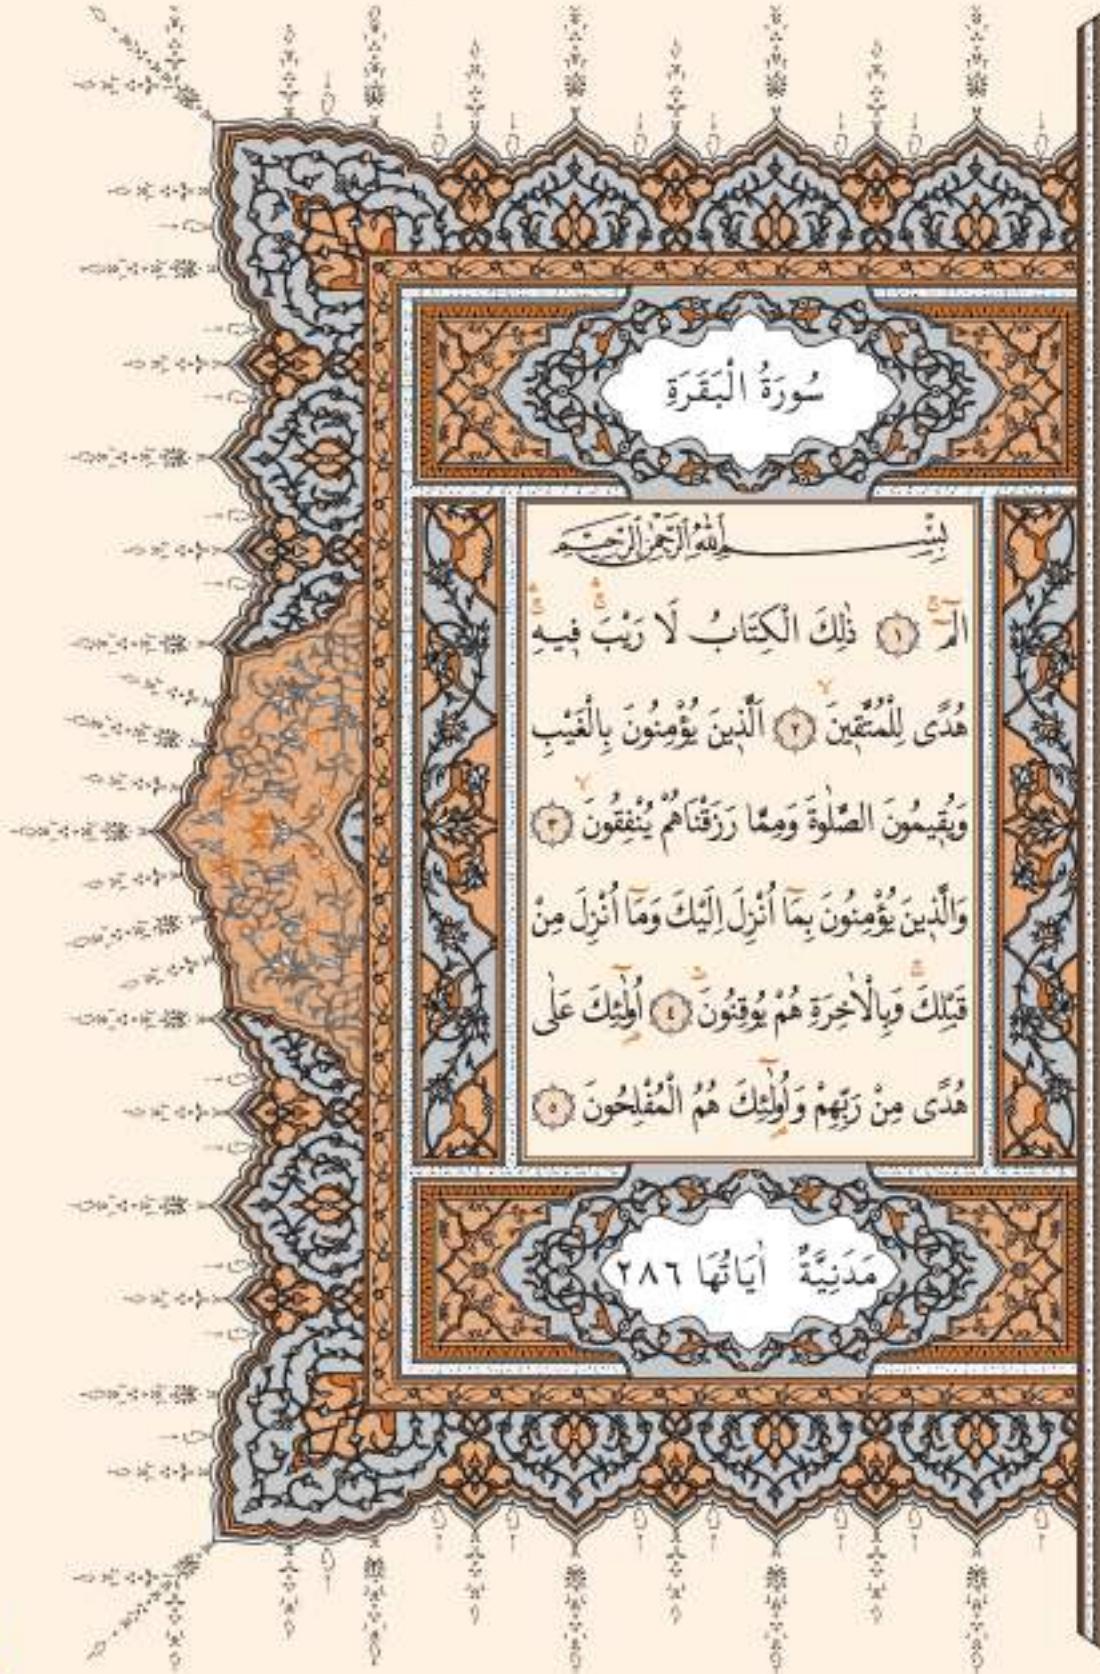 سُورَةُ الْبَقَرَةِ
بِسْمِ اللّٰهِ الرَّحْمٰنِ الرَّحِيمِ
الٓمٓ ۚ ﴿١﴾ ذٰلِكَ الْكِتَابُ لَا رَيْبَ ۛ فِيهِ ۛ
هُدًى لِلْمُتَّقِينَ ۙ ﴿٢﴾ اَلَّذِينَ يُؤْمِنُونَ بِالْغَيْبِ
وَيُقِيمُونَ الصَّلٰوةَ وَمِمَّا رَزَقْنَاهُمْ يُنْفِقُونَ ۙ ﴿٣﴾
وَالَّذِينَ يُؤْمِنُونَ بِمَٓا اُنْزِلَ اِلَيْكَ وَمَٓا اُنْزِلَ مِنْ
قَبْلِكَ ۚ وَبِالْاٰخِرَةِ هُمْ يُوقِنُونَ ۜ ﴿٤﴾ اُو۬لٰٓئِكَ عَلٰى
هُدًى مِنْ رَبِّهِمْ وَاُو۬لٰٓئِكَ هُمُ الْمُفْلِحُونَ ﴿٥﴾
مَدَنِيَّةٌ اٰيَاتُهَا ٢٨٦